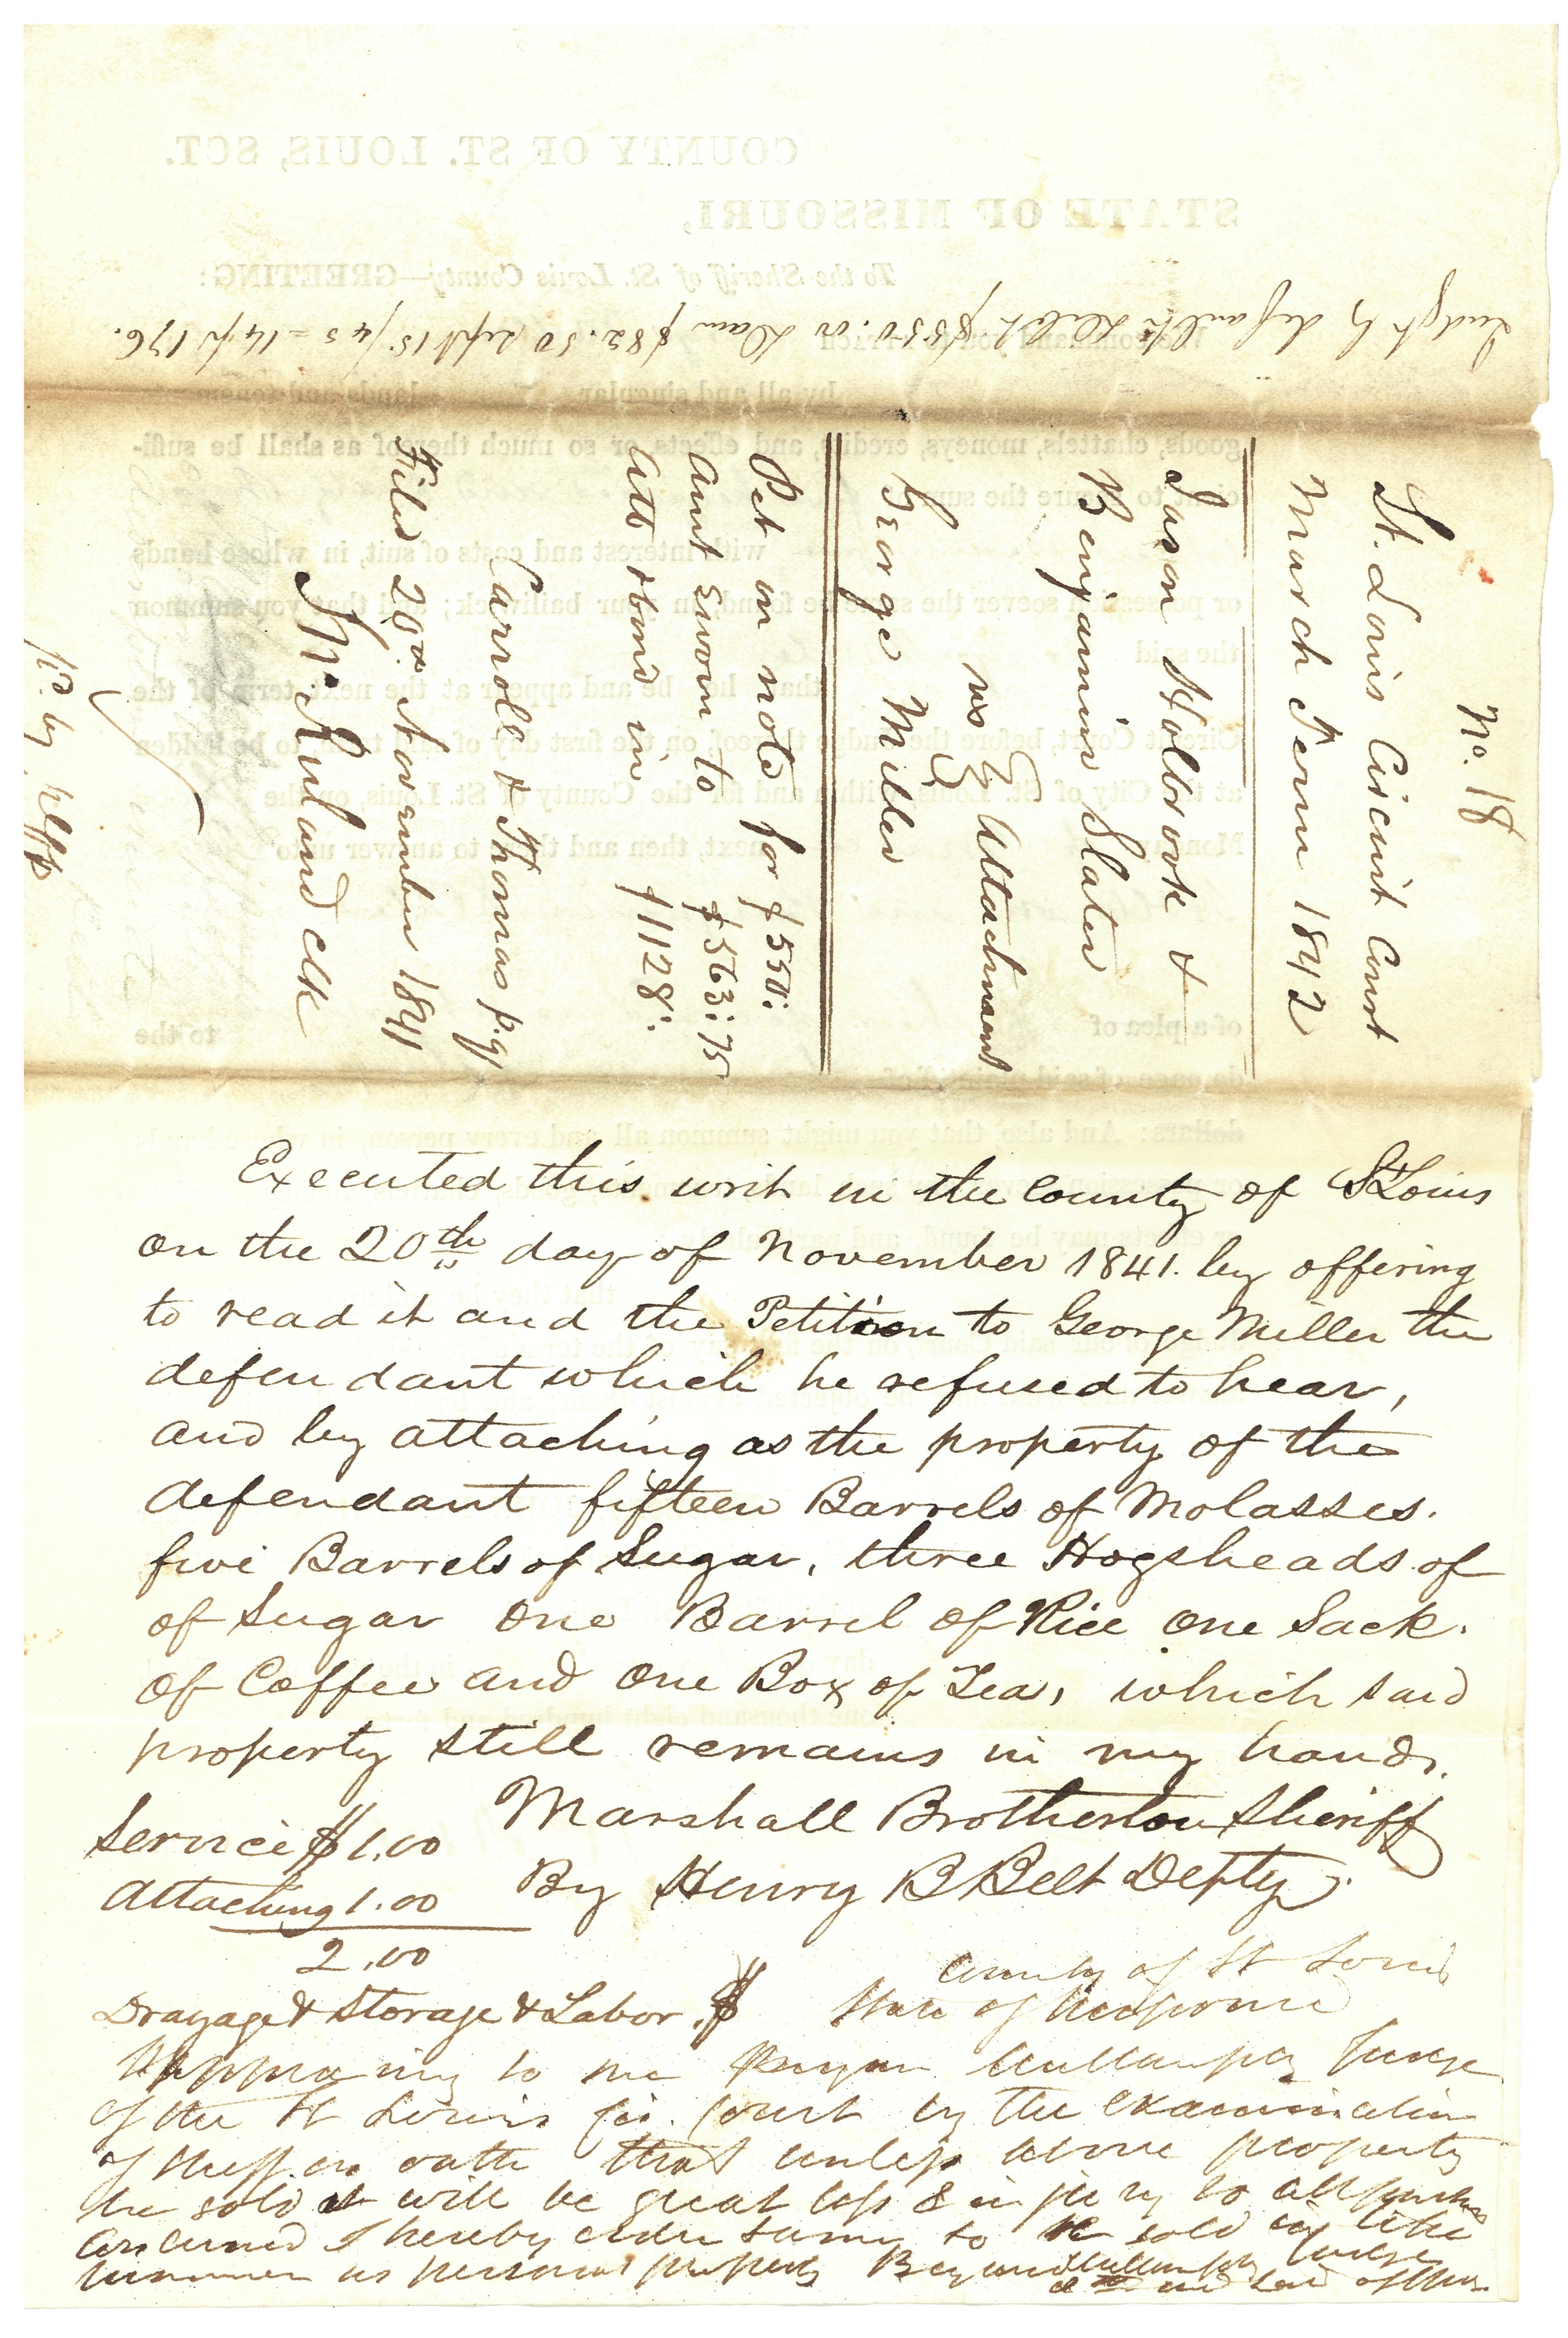 Judgt by default Debt $550. or Dam $82.50 Sept 15/45 = 14 p 176.
No. 18
St. Louis Circuit Court
March Term 1842
Jason Holbrook &
Benjamin Slater
vs } Attachment
George Miller
Pet on note for $550:
amt sworn to $563:75
Atts & bond in $1128:
Carroll & Thomas p.q.
Filed 20th November 1841
Jno. Ruland clk
pd. by plffs
Executed this writ in the County of St Louis
on the 20th day of November 1841. by offering
to read it and the Petition to George Miller the
defendant which he refused to hear,
and by attaching as the property of the
defendant fifteen Barrels of Molasses.
five Barrels of Sugar, three Hogsheads of
of Sugar one Barrel of Rice one Sack.
of Coffee and one Box of Tea, which said
property still remains in my hands.
Marshall Brotherton Sheriff
By Henry B Belt Depty.
Service $1.00
Attaching 1.00
2.00
Drayage & Storage & Labor. $
County of St Louis
State of Missouri
appearing to me Bryan Mullanphy Judge
of the St Louis Cir. Court by the examination
of on oath that unless above property
be sold it will be great loss & injury to all parties
concerned I hereby order same to be sold in like
manner as personal property Bryan Mullanphy Judge